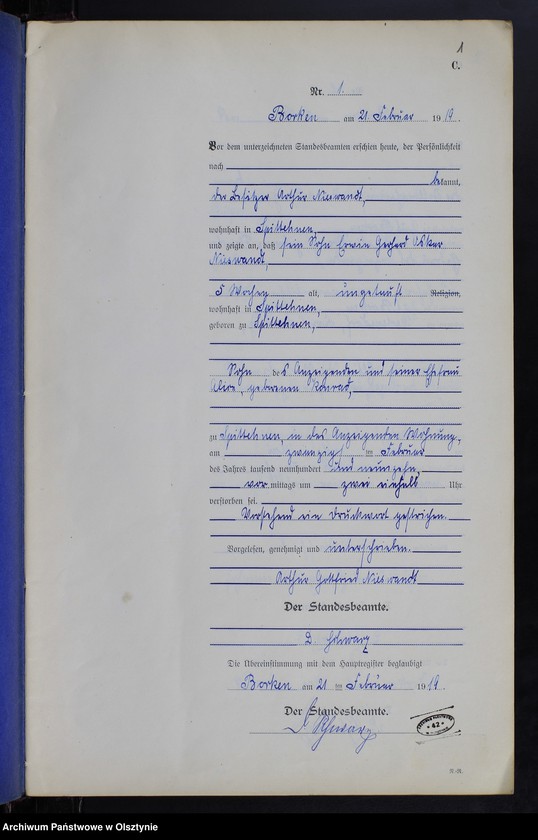 1
C.
Nr. 1.
Borken am 21 Februar 1919.
Vor dem unterzeichneten Standesbeamten erschien heute, der Persönlichkeit
nach
bekannt,
der Besitzer Arthur Nieswandt,
wohnhaft in Spittehnen,
und zeigte an, daß sein Sohn Erwin Gerhard Oskar
Nieswandt,
5 Wochen alt, ungetauft Religion,
wohnhaft in Spittehnen,
geboren zu Spittehnen,
Sohn des Anzeigenden und seiner Ehefrau
geborenen Konrad,
zu Spittehnen, in des Anzeigenden Wohnung,
am zwanzig im Februar
des Jahres tausend neunhundert und neunzehn,
vor mittags um zwei einhalb Uhr
verstorben sei.
Vorstehend ein Druckwort gestrichen.
Vorgelesen, genehmigt und unterschrieben.
Arthur Gottfried Nieswandt
Der Standesbeamte.
D. Schwarz
Die Übereinstimmung mit dem Hauptregister beglaubigt
Borken am 21 im Februar 1919.
Der Standesbeamte.
D. Schwarz
42
Archiwum Państwowe w Olsztynie